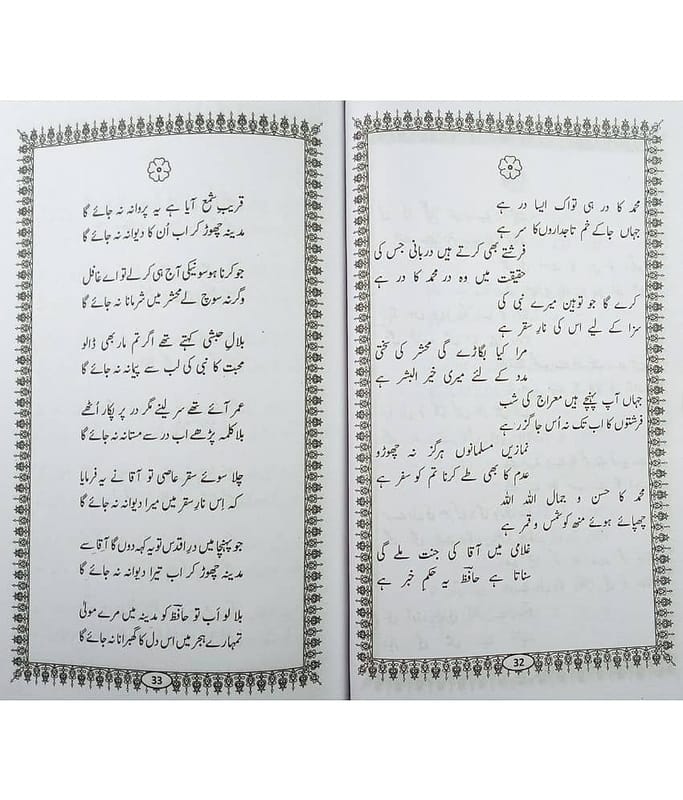 محمد کا در ہی تو اک ایسا در ہے
جہاں جا کے خم تاجداروں کا سر ہے
فرشتے بھی کرتے ہیں دربانی جس کی
حقیقت میں وہ در محمد کا در ہے
کرے گا جو توہین میرے نبی کی
سزا کے لیے اس کی نارِ سقر ہے
مرا کیا بگاڑے گی محشر کی سختی
مدد کے لئے میری خیر البشر ہے
جہاں آپ پہنچے ہیں معراج کی شب
فرشتوں کا اب تک نہ اُس جا گزر ہے
نمازیں مسلمانوں ہرگز نہ چھوڑو
عدم کا بھی طے کرنا تم کو سفر ہے
محمد کا حسن و جمال اللہ اللہ
چھپائے ہوئے منھ کو شمس و قمر ہے
غلامی میں آقا کی جنت ملے گی
سناتا ہے حافظؔ یہ حکم خبر ہے
32
قریبِ شمع آیا ہے یہ پروانہ نہ جائے گا
مدینہ چھوڑ کر اب اُن کا دیوانہ نہ جائے گا
جو کرنا ہو سو نیکی آج ہی کر لے تو اے غافل
وگرنہ سوچ لے محشر میں شرمانا نہ جائے گا
بلالِ حبشی کہتے تھے اگر تم مار بھی ڈالو
محبت کا نبی کی لب سے پیمانہ نہ جائے گا
عمر آئے تھے سر لینے مگر در پر پکار اُٹھے
بلا کلمہ پڑھے اب در سے مستانہ نہ جائے گا
چلا سوئے سقر عاصی تو آقا نے یہ فرمایا
کہ اِس نارِ سقر میں میرا دیوانہ نہ جائے گا
جو پہنچا میں درِ اقدس تو یہ کہہ دوں گا آقا سے
مدینہ چھوڑ کر اب تیرا دیوانہ نہ جائے گا
بلا لو اَب تو حافظؔ کو مدینہ میں مرے مولیٰ
تمہارے ہجر میں اس دل کا گھبرانا نہ جائے گا
33